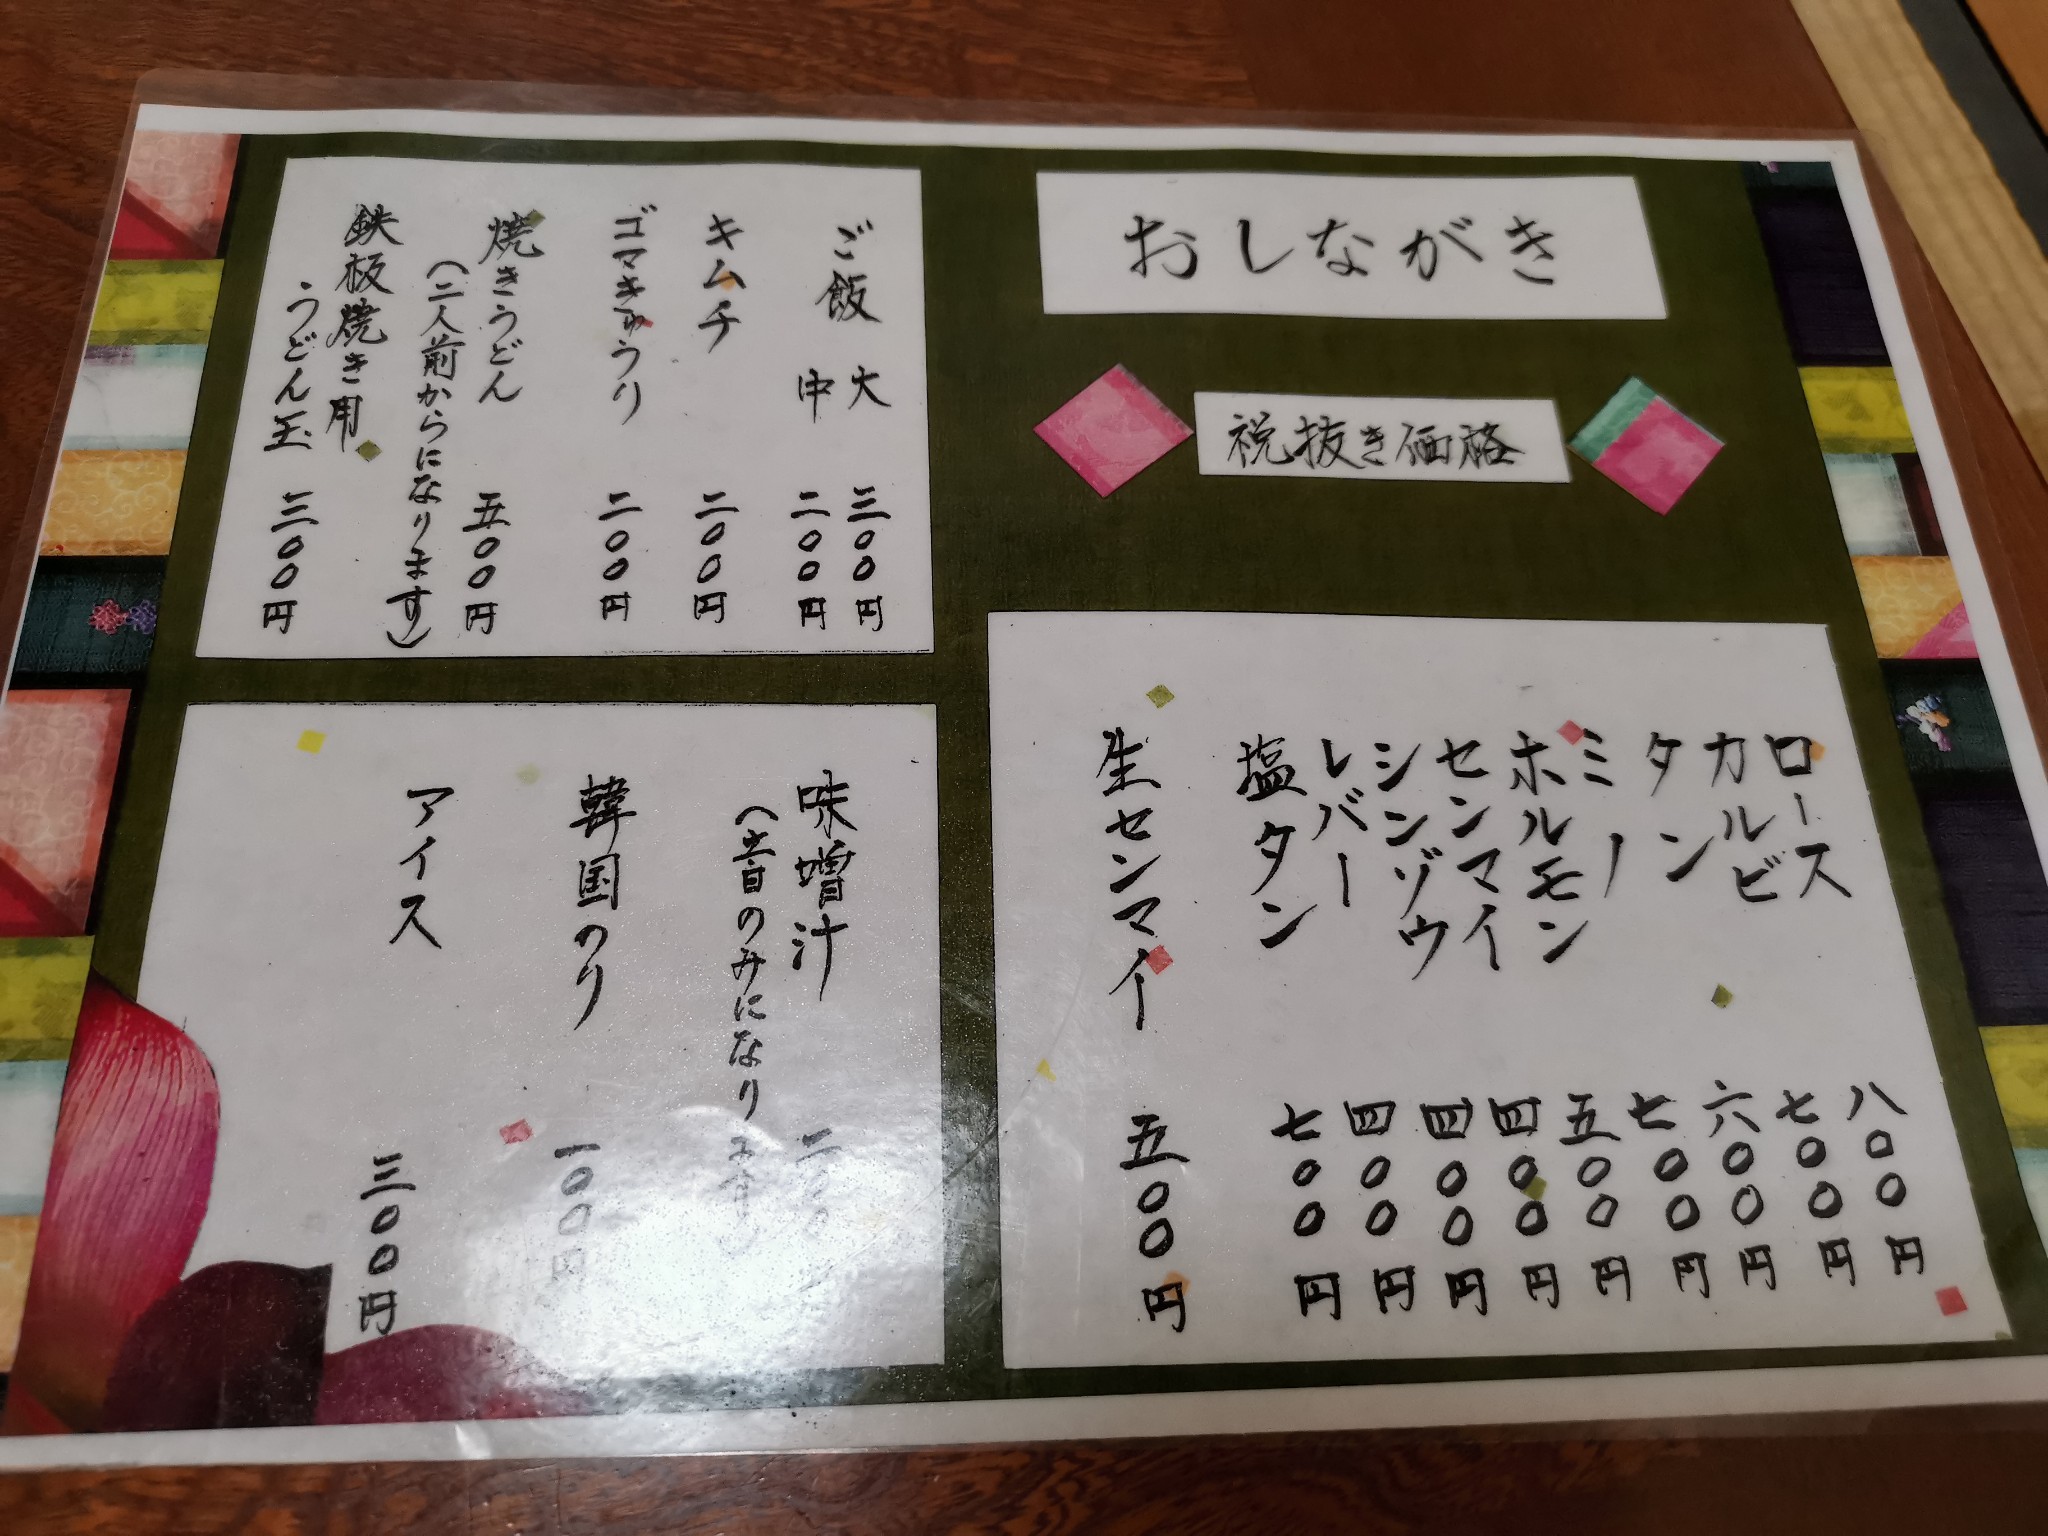 おしながき
税抜き価格
ロース 八〇〇円
カルビ 七〇〇円
タン 六〇〇円
ミノ 七〇〇円
ホルモン 五〇〇円
センマイ 四〇〇円
シンゾウ 四〇〇円
レバー 四〇〇円
塩タン 七〇〇円
生センマイ 五〇〇円
ご飯 大 三〇〇円
中 二〇〇円
キムチ 二〇〇円
ゴマきゅうり 二〇〇円
焼きうどん 五〇〇円
(二人前からになります)
鉄板焼き用
うどん玉 三〇〇円
味噌汁 二〇〇円
(昼のみになります)
韓国のり 一〇〇円
アイス 三〇〇円